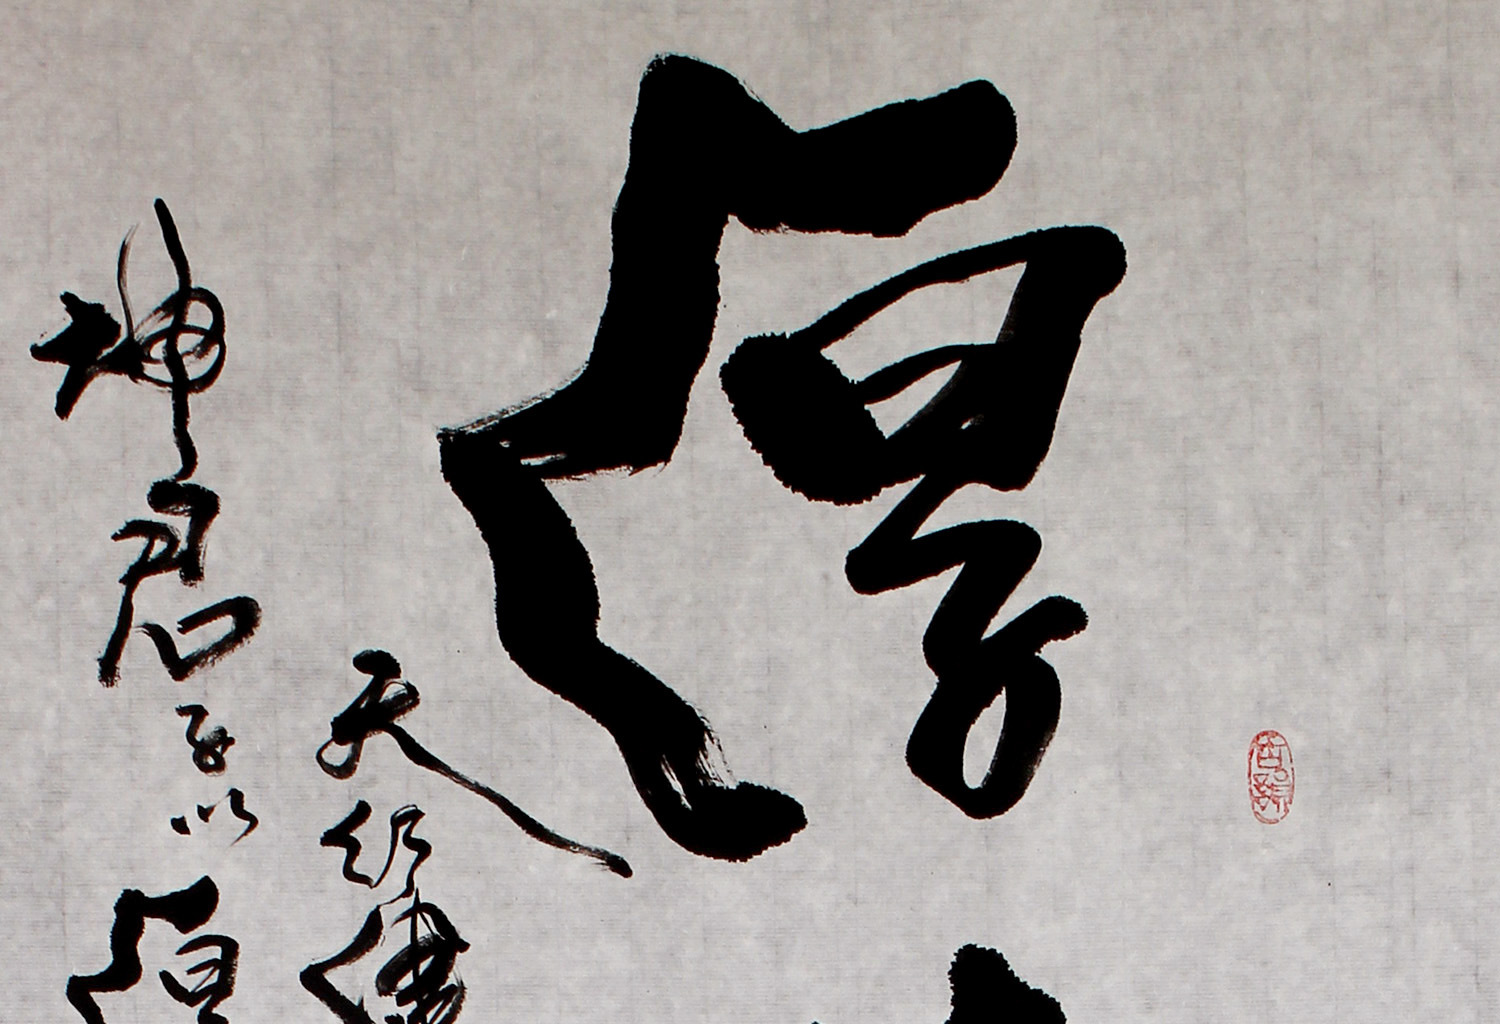 厚
天行健
坤君子以厚